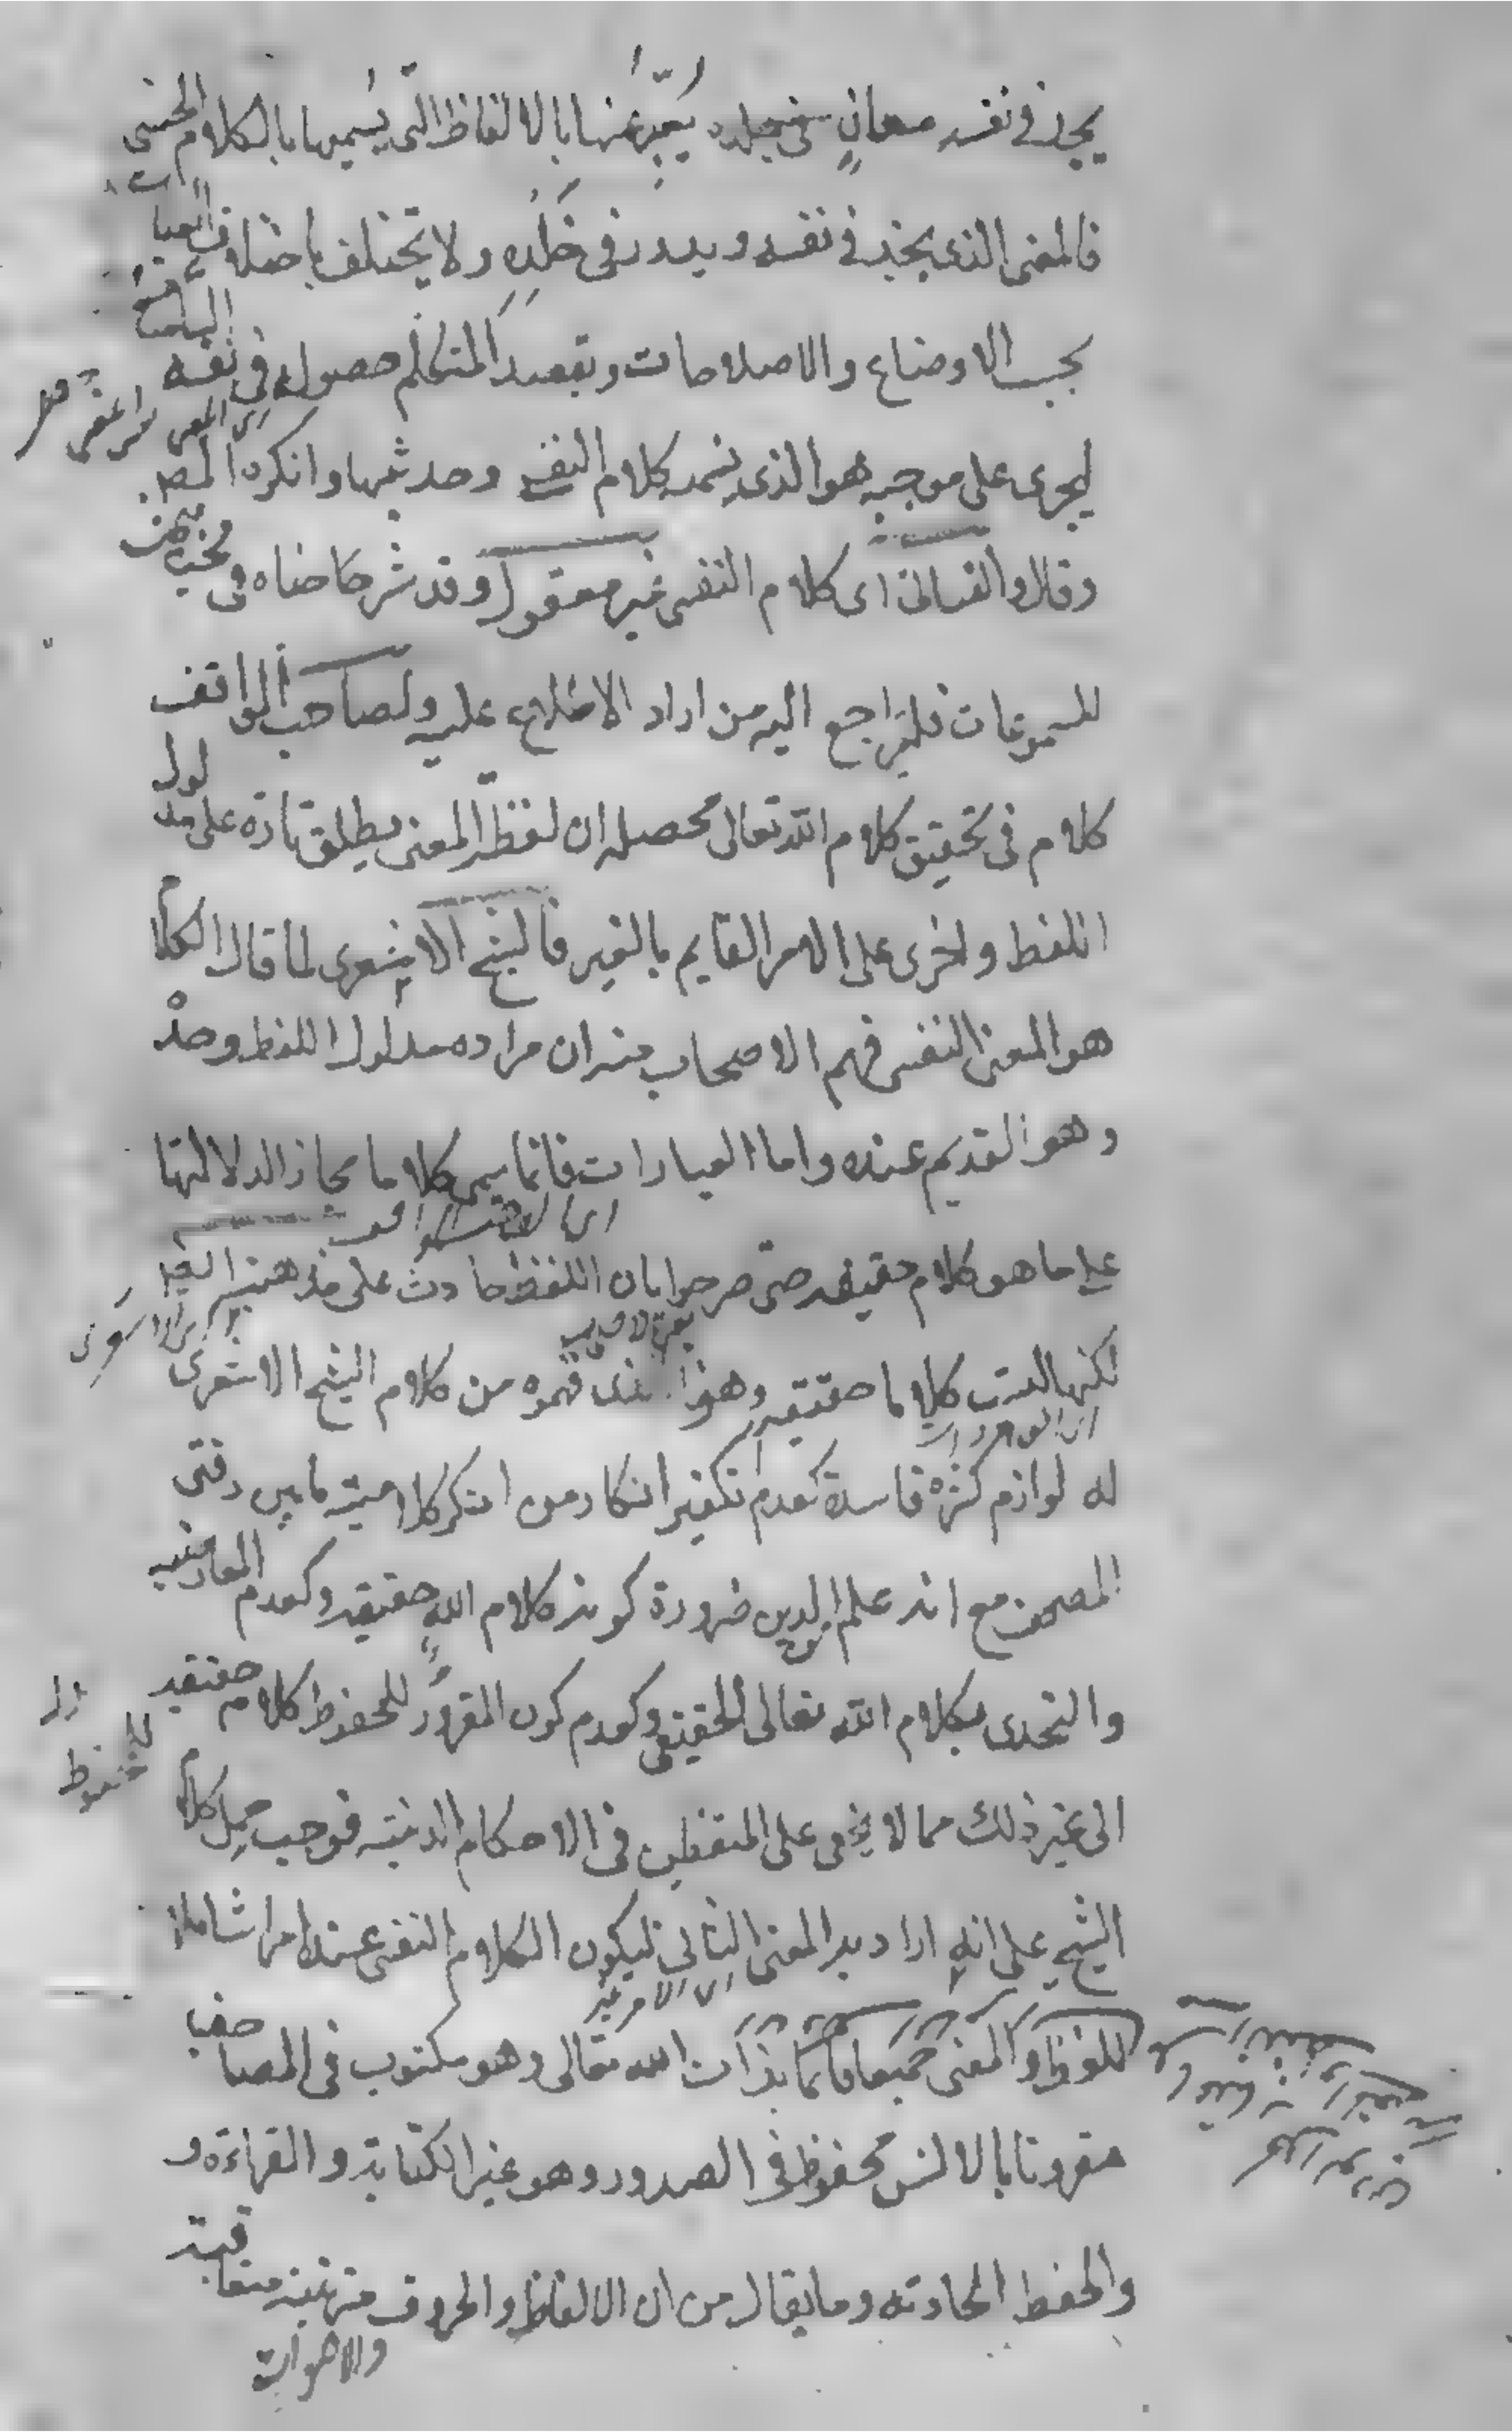 يجد في نفسه معان يعبر عنها بالالفاظ التي يسميها بالكلام الحسى
فالمعنى الذى يجد في نفسه ويدور فى خلده ولا يختلف باختلاف العبارات
بحسب الاوضاع والاصلاحات ويقصد المتكلم حصوله في نفسه السامع
ليجرى على موجبه هو الذى نسميه كلام النفس وحديثها وانكره المص
وقال والنفسانى اى كلام النفسى غير معقول وقد شرحناه فى مبحث
المسموعات فليراجع اليه من اراد الاطلاع عليه ولصاحب المواقف
كلام فى تحقيق كلام الله تعالى محصله ان لفظ المعنى يطلق تارة على مدلول
اللفظ واخرى على الامر القايم بالغير فالشيخ الاشعرى لما قال الكلام
هو المعنى النفسى فهم الاصحاب منه ان مراده مدلول اللفظ وحده
وهو القديم عنده واما العبارات فانما يسمى كلاما مجازا لدلالتها
على ما هو كلام حقيقة حتى صرحوا بان اللفظ حادث على مذهبه
لكنها ليست كلاما حقيقة وهذا الذى فهموه من كلام الشيخ الاشعرى
له لوازم كثيرة فاسدة كعدم تكفير انكار من انكر كلامية ما بين دفتى
المصحف مع انه علم من الدين ضرورة كونه كلام الله حقيقة وكعدم المعارضة
والتحدى بكلام الله تعالى الحقيقى وكعدم كون المقرو للحفوظ كلام حقيقة
المحفوظ
الى غير ذلك مما لا يخفى على المتفطن فى الاحكام الدينية فوجب حمل كلام
الشيخ على انه اراد به المعنى الثانى ليكون الكلام النفسى عنده امرا شاملا
للفظ والمعنى جميعا قائما بذات الله تعالى وهو مكتوب فى المصاحف
مقرونا بالالسن محفوظ فى الصدور وهو غير الكتابة والقراءة و
والحفظ الحادثه وما يقال من ان الالفاظ والحروف مترتبة متعاقبة
والاصوات